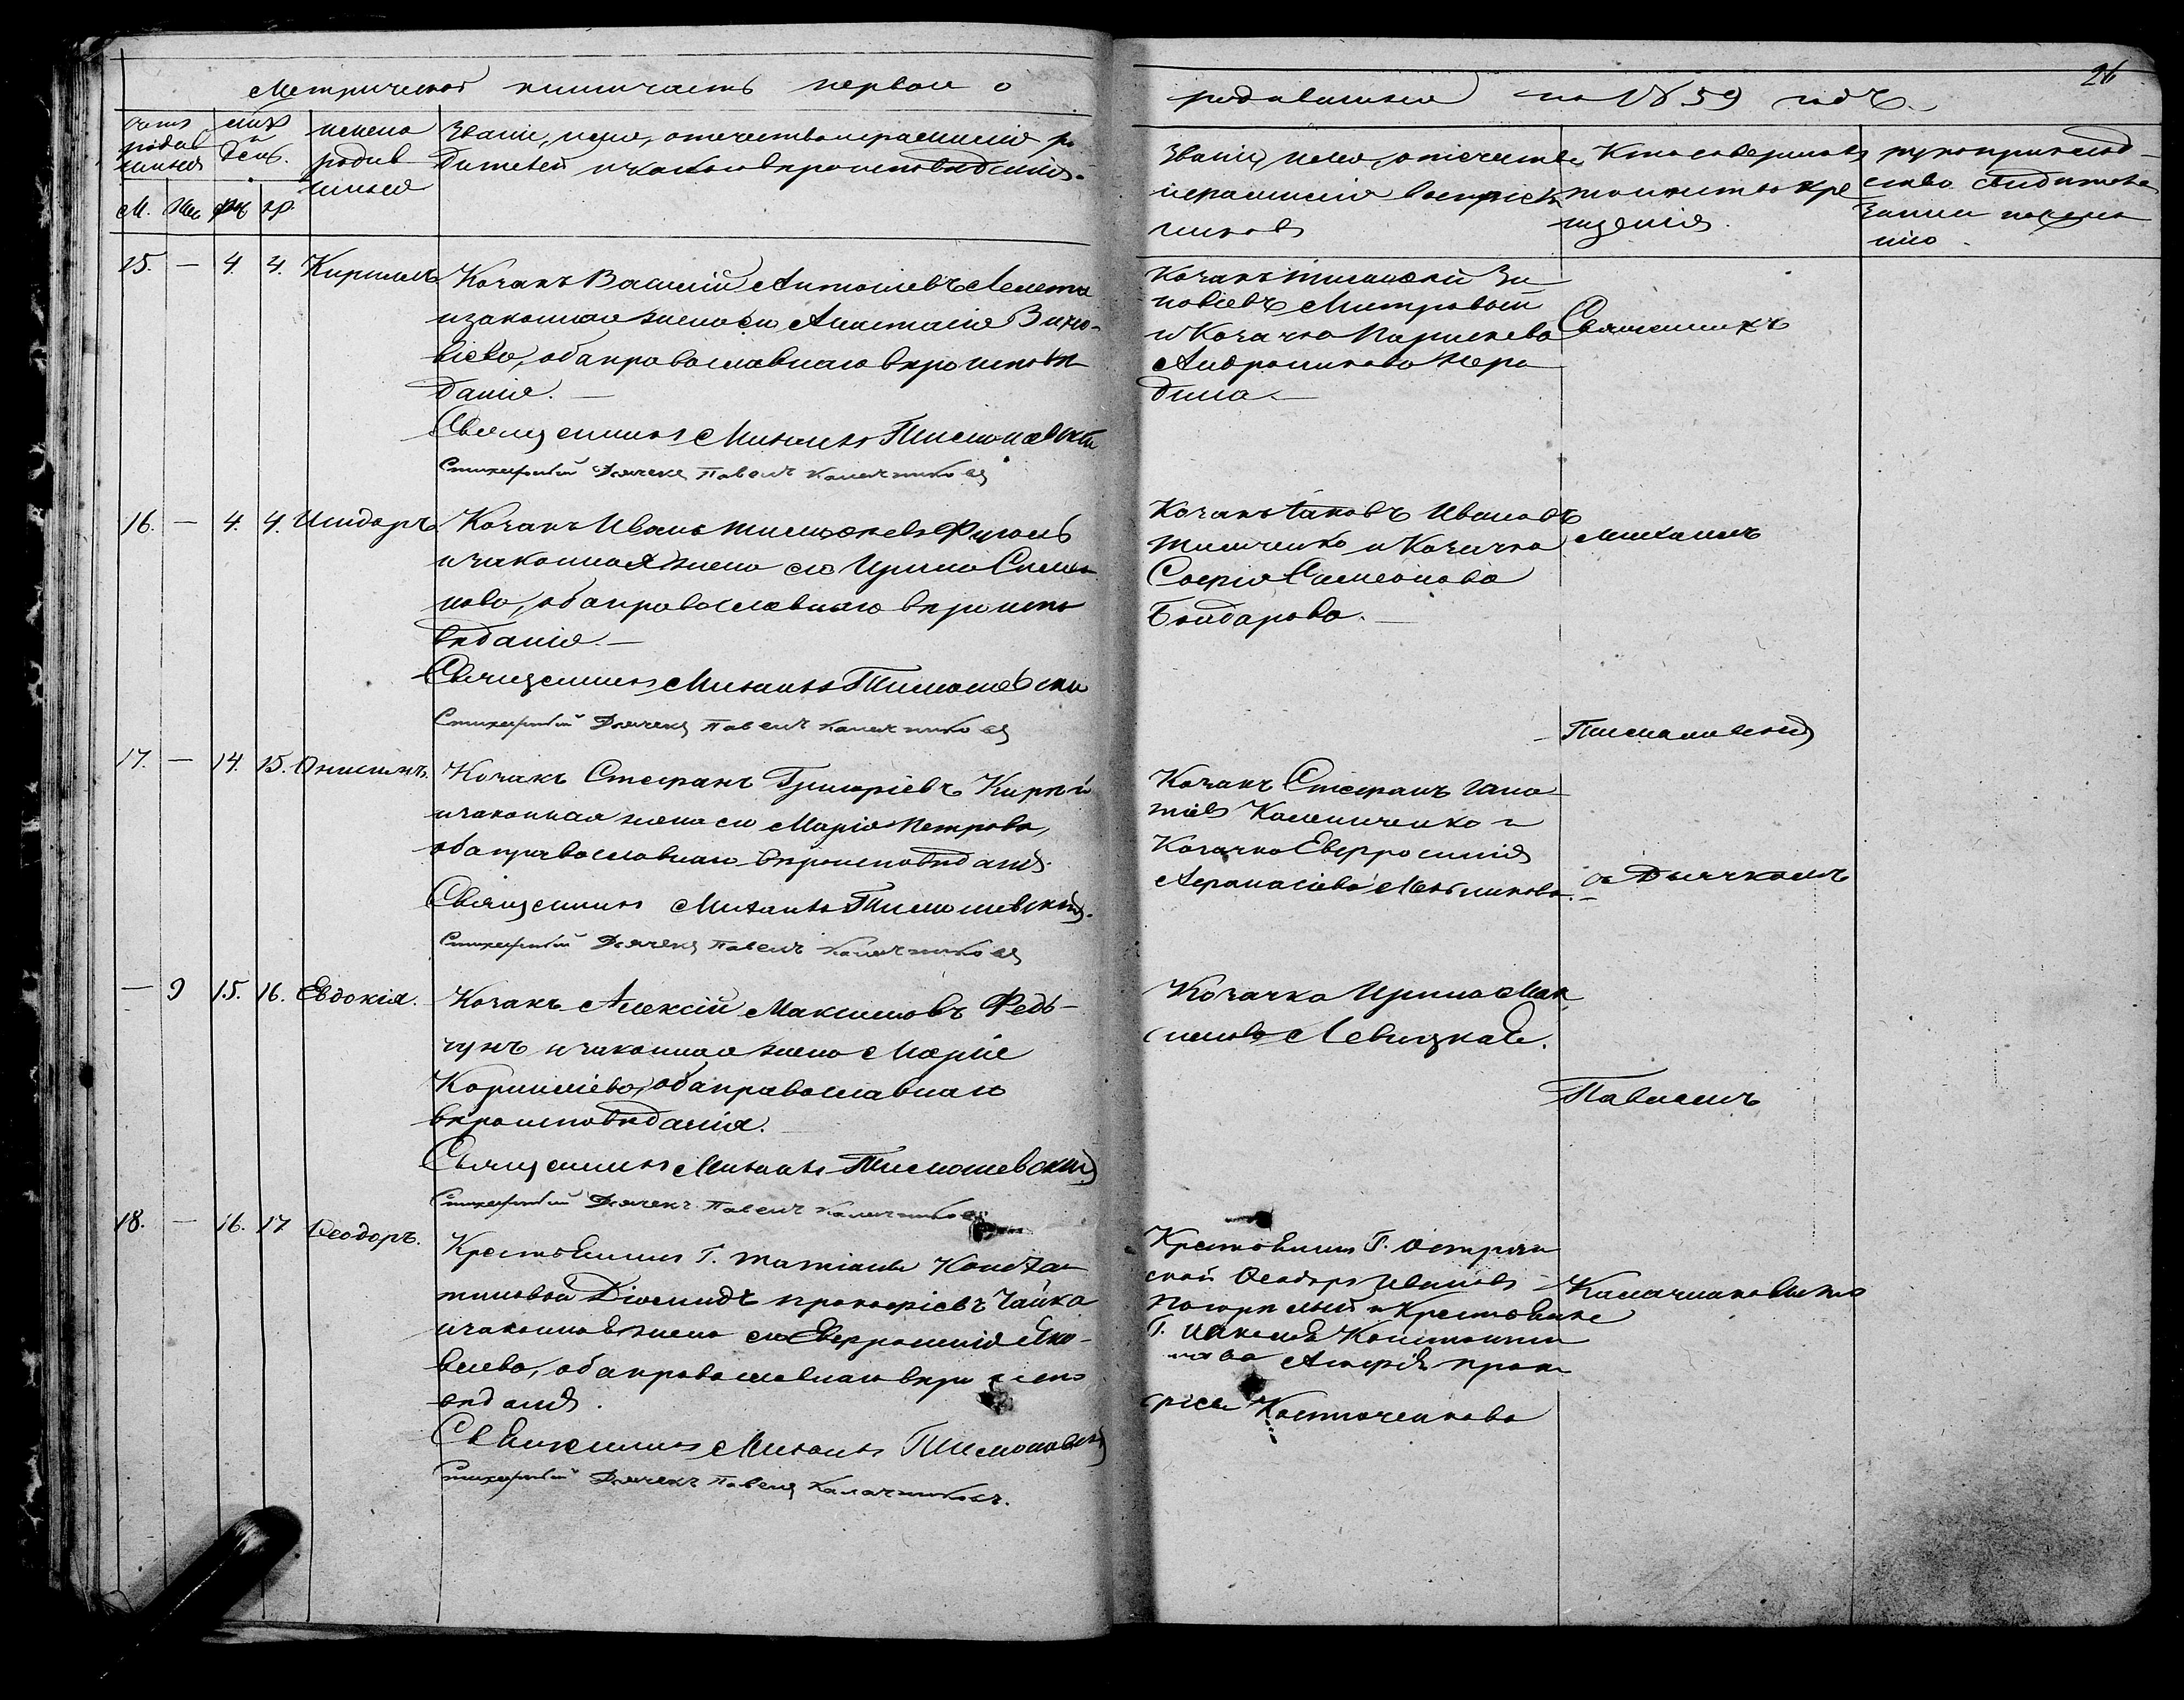 Метрической книги часть первая о
родившихся на 1859 годъ.
26
счетъ родившихся
М. Же.
мѣс. и день.
рож. кр.
имена родившихся
Званіе, имя, отечество и фамилія ро
дителей и какого вѣроисповѣданія.
Званіе, имя, отечество
и фамилія воспріем
никовъ
Кто совершалъ
таинство кре
щенія.
рукоприклад
ство свидѣтелей
записи по жела
нію.
15. — 4. 4. Кириллъ
Козакъ Василій Антоніевъ
и законная жена его Анастасія Зино-
віева, оба православнаго вѣроисповѣ
данія. —
Священникъ Михаилъ Тимошевскій
Стихарный Дьячекъ Павелъ Калачниковъ
Козакъ Тимофей Зи
новіевъ Митровый
и Козачка Параскева
Андроникова
дина —
Священникъ
16. — 4. 4. Исидоръ
Козакъ Иванъ Тимофеевъ
и законная жена его Ирина Симео
нова, оба православнаго вѣроиспо
вѣданія. —
Священникъ Михаилъ Тимошевскій
Стихарный Дьячекъ Павелъ Калачниковъ
Козакъ Іаковъ Ивановъ
Тимченко и Козачка
Софія Симеонова
Бондарева. —
Михаилъ
Тимошевскій
17. — 14. 15. Онисимъ.
Козакъ Стефанъ Григоріевъ Кирѣй
и законная жена его Марія Петрова,
оба православнаго вѣроисповѣданія.
Священникъ Михаилъ Тимошевскій.
Стихарный Дьячекъ Павелъ Калачниковъ
Козакъ Стефанъ Игна
тіевъ Калениченко и
Козачка Евфросинія
Афанасіева Мельникова. —
съ Дьячкомъ
— 9 15. 16. Евдокія.
Козакъ Алексій Максимовъ Федь-
чунъ и законная жена Марія
Корниліева, оба православнаго
вѣроисповѣданія.
Священникъ Михаилъ Тимошевскій
Стихарный Дьячекъ Павелъ Калачниковъ
Козачка Ирина Мак
симова Левицкая.
Павломъ
18. — 16. 17 Феодоръ.
Крестьянинъ Г. Татіаны Конста
тиновой Діомидъ Прокофіевъ Чайка
и законная жена его Евфросинія Яко-
влева, оба православнаго вѣроиспо
вѣданія.
Священникъ Михаилъ Тимошевскій
Стихарный Дьячекъ Павелъ Калачниковъ.
Крестьянинъ Г. Остро
ской Феодоръ Ивановъ
Погорѣлый и Крестьянка
Г. Константи
нова Агафія Проко
фіева Костюченкова
Калачниковымъ